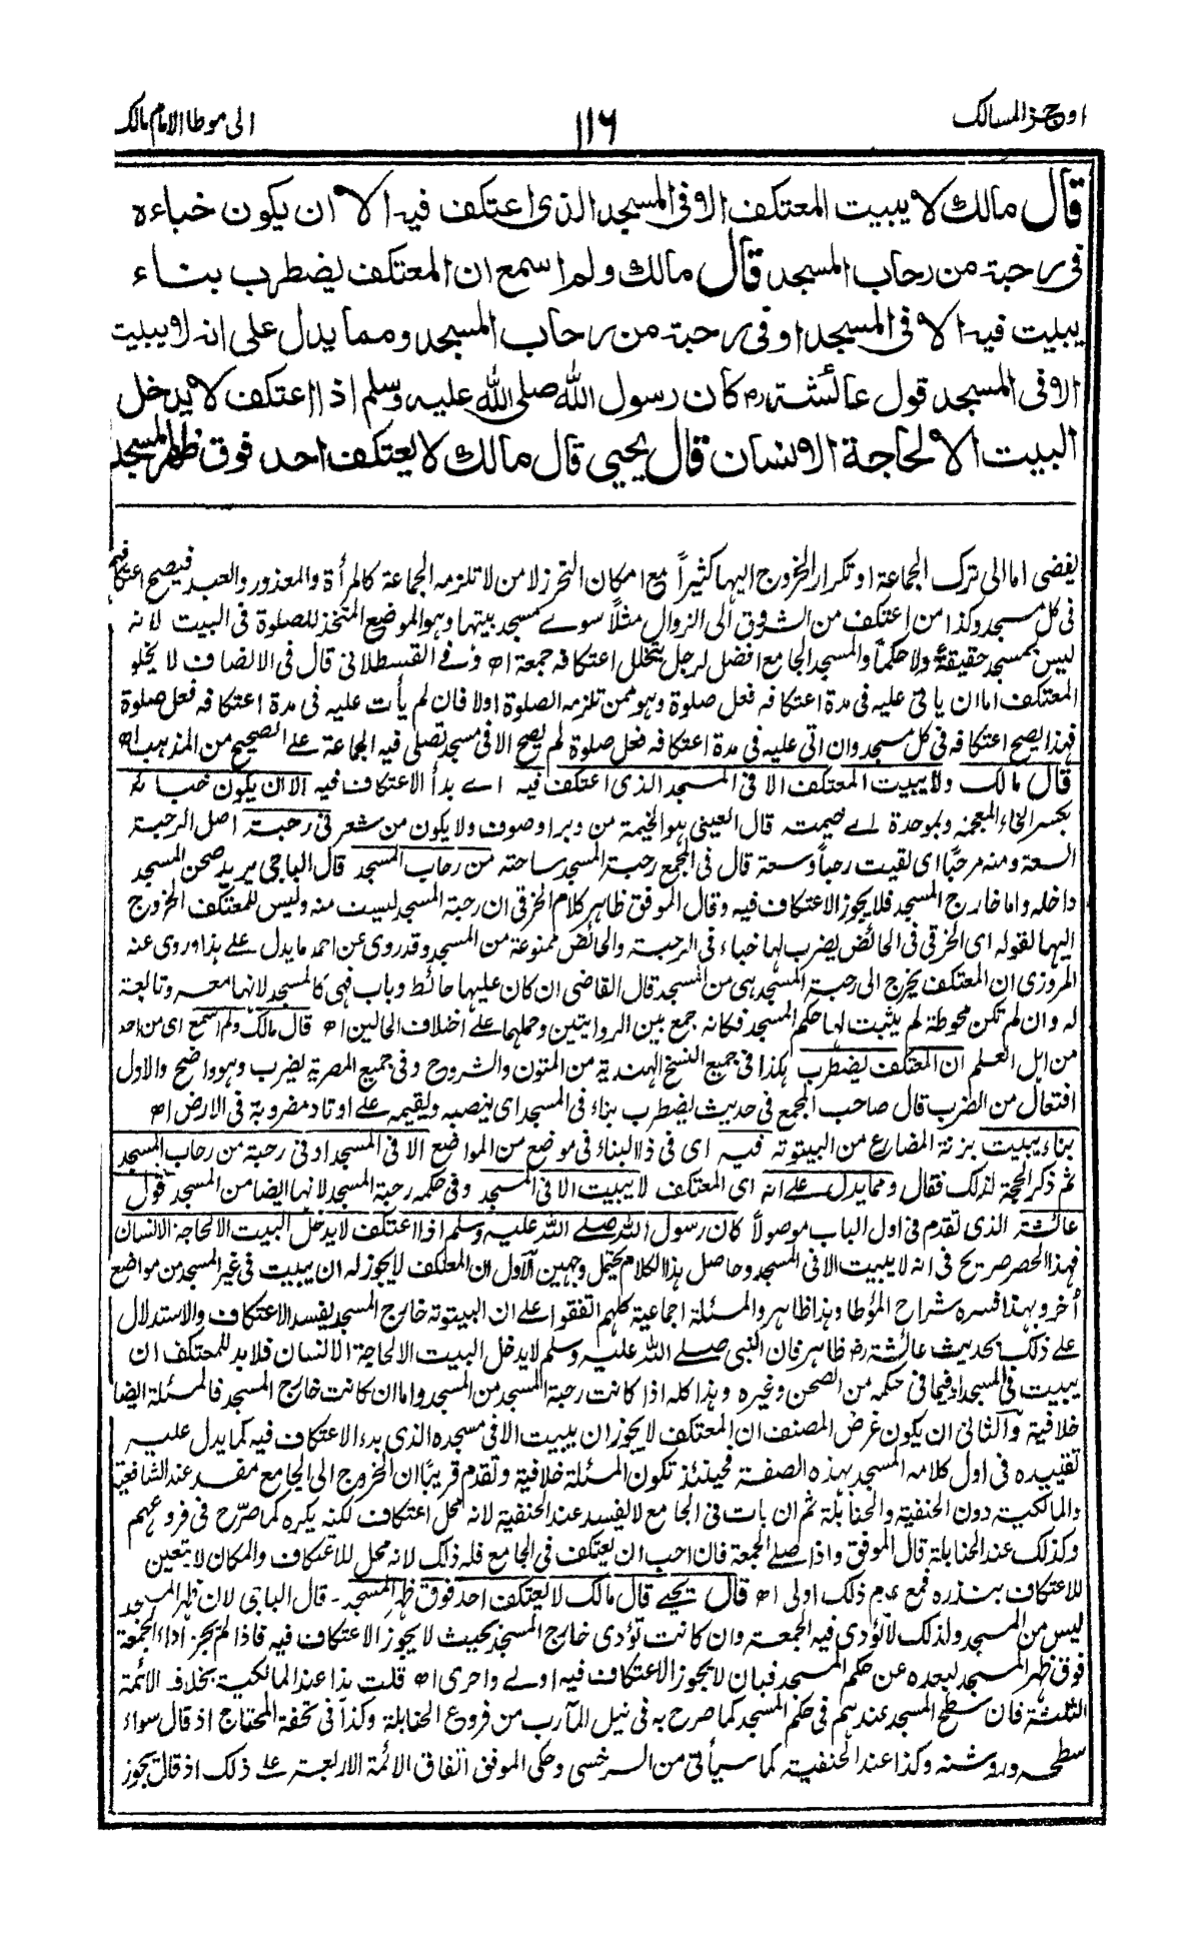 اوجز المسالك ١١٦ الى موطا الامام مالك
قال مالك لا يبيت المعتكف الا فى المسجد الذى اعتكف فيه الا ان يكون خباءه
فى رحبة من رحاب المسجد قال مالك ولم اسمع ان المعتكف يضطرب بناء
يبيت فيه الا فى المسجد او فى رحبة من رحاب المسجد ومما يدل على انه لا يبيت
الا فى المسجد قول عائشة رض كان رسول الله صلى الله عليه وسلم اذا اعتكف لا يدخل
البيت الا لحاجة الانسان قال يحيى قال مالك لا يعتكف احد فوق ظهر المسجد
يفضى اما الى ترك الجماعة او تكرار الخروج اليها كثيراً مع امكان التحرز لا من لا تلزمه الجماعة كالمرأة والمعذور والعبد فيصح اعتكافهم
فى كل مسجد وكذا من اعتكف من الشروق الى الزوال مثلاً سوے مسجد بيتها وهو الموضع المتخذ للصلوة فى البيت لانه
ليس بمسجد حقيقةً ولا حكماً والمسجد الجامع افضل لرجل يتخلل اعتكافه جمعة اھ وفے القسطلانى قال فى الانصاف لا يخلو
المعتكف اما ان ياتى عليه فى مدة اعتكافه فعل صلوة وهو ممن تلزمه الصلوة اولا فان لم يأت عليه فى مدة اعتكافه فعل صلوة
فهذا يصح اعتكافه فى كل مسجد وان اتى عليه فى مدة اعتكافه فعل صلوة لم يصح الا فى مسجد تصلى فيه الجماعة علے الصحيح من المذهب اھ
قال مالك ولا يبيت المعتكف الا فى المسجد الذى اعتكف فيه اے بدأ الاعتكاف فيه الا ان يكون خباءه
بكسر الخاء المعجمة وبموحدة اے خيمته قال العينى هو الخيمة من وبر او صوف ولا يكون من شعر فى رحبة اصل الرحبة
السعة ومنه مرحبًا اى لقيت رحباً وسعة قال فى المجمع رحبة المسجد ساحته من رحاب المسجد قال الباجى يريد صحن المسجد
داخله واما خارج المسجد فلا يجوز الاعتكاف فيه وقال الموفق ظاهر كلام الخرقى ان رحبة المسجد ليست منه وليس للمعتكف الخروج
اليها لقوله اى الخرقى فى الحائض يضرب لها خباء فى الرحبة والحائض ممنوعة من المسجد وقد روى عن احمد ما يدل علے هذا وروى عنه
المروزى ان المعتكف يخرج الى رحبة المسجد هى من المسجد قال القاضى ان كان عليها حائط وباب فهى كالمسجد لانها معه وتابعة
له وان لم تكن محوطة لم يثبت لها حكم المسجد فكانه جمع بين الروايتين وحملها علے اختلاف الحالين اھ قال مالك ولم اسمع اى من احد
من اهل العلم ان المعتكف يضطرب هكذا فى جميع النسخ الهندية من المتون والشروح وفى جميع المصرية يضرب وهو واضح والاول
افتعال من الضرب قال صاحب المجمع فى حديث يضطرب بناء فى المسجد اى ينصبه ويقيمه علے اوتاد مضروبة فى الارض اھ
بناء يبيت بزنة المضارع من البيتوتة فيه اى فى ذا البناء فى موضع من المواضع الا فى المسجد او فى رحبة من رحاب المسجد
ثم ذكر الحجة لذلك فقال ومما يدل علے انه اى المعتكف لا يبيت الا فى المسجد وفى حكمه رحبة المسجد لانها ايضا من المسجد قول
عائشة الذى تقدم فى اول الباب موصولاً كان رسول الله صلے الله عليه وسلم اذا اعتكف لا يدخل البيت الا لحاجة الانسان
فهذا الحصر صريح فى انه لا يبيت الا فى المسجد وحاصل هذا الكلام يحتمل وجهين الاول ان المعتكف لا يجوز له ان يبيت فى غير المسجد من مواضع
أخر وبهذا فسره شراح المؤطا وهذا ظاهر والمسئلة اجماعية كلهم اتفقوا علے ان البيتوتة خارج المسجد يفسد الاعتكاف والاستدلال
علے ذلك بحديث عائشة رض ظاهر فان النبى صلے الله عليه وسلم لا يدخل البيت الا لحاجة الانسان فلا بد للمعتكف ان
يبيت فى المسجد او فيما فى حكمه من الصحن وغيره وهذا كله اذا كانت رحبة المسجد من المسجد واما ان كانت خارج المسجد فالمسئلة ايضا
خلافية والثانى ان يكون غرض المصنف ان المعتكف لا يجوز ان يبيت الا فى مسجده الذى بدء الاعتكاف فيه كما يدل عليه
تقييده فى اول كلامه المسجد بهذه الصفة فحينئذ تكون المسئلة خلافية وتقدم قريبًا ان الخروج الى الجامع مفسد عند الشافعية
والمالكية دون الحنفية والحنابلة ثم ان بات فى الجامع لا يفسد عند الحنفية لانه محل اعتكاف لكنه يكره كما صرّح فى فروعهم
وكذلك عند الحنابلة قال الموفق واذا صلے الجمعة فان احب ان يعتكف فى الجامع فله ذلك لانه محل للاعتكاف والمكان لا يتعين
للاعتكاف بنذره فمع عدم ذلك اولى اھ قال يحيے قال مالك لا يعتكف احد فوق ظهر المسجد ـ قال الباجى لان ظهر المسجد
ليس من المسجد ولذلك لا تؤدى فيه الجمعة وان كانت تؤدى خارج المسجد بحيث لا يجوز الاعتكاف فيه فاذا لم يجز اداء الجمعة
فوق ظهر المسجد لبعده عن حكم المسجد فبان لا يجوز الاعتكاف فيه اولے واحرى اھ قلت هذا عند المالكية بخلاف الائمة
الثلثة فان سطح المسجد عندهم فى حكم المسجد كما صرح به فى نيل المآرب من فروع الحنابلة وكذا فى تحفة المحتاج اذ قال سواء
سطحه وروشنه وكذا عند الحنفية كما سيأتى من السرخسى وحكى الموفق اتفاق الائمة الاربعة علے ذلك اذ قال يجوز